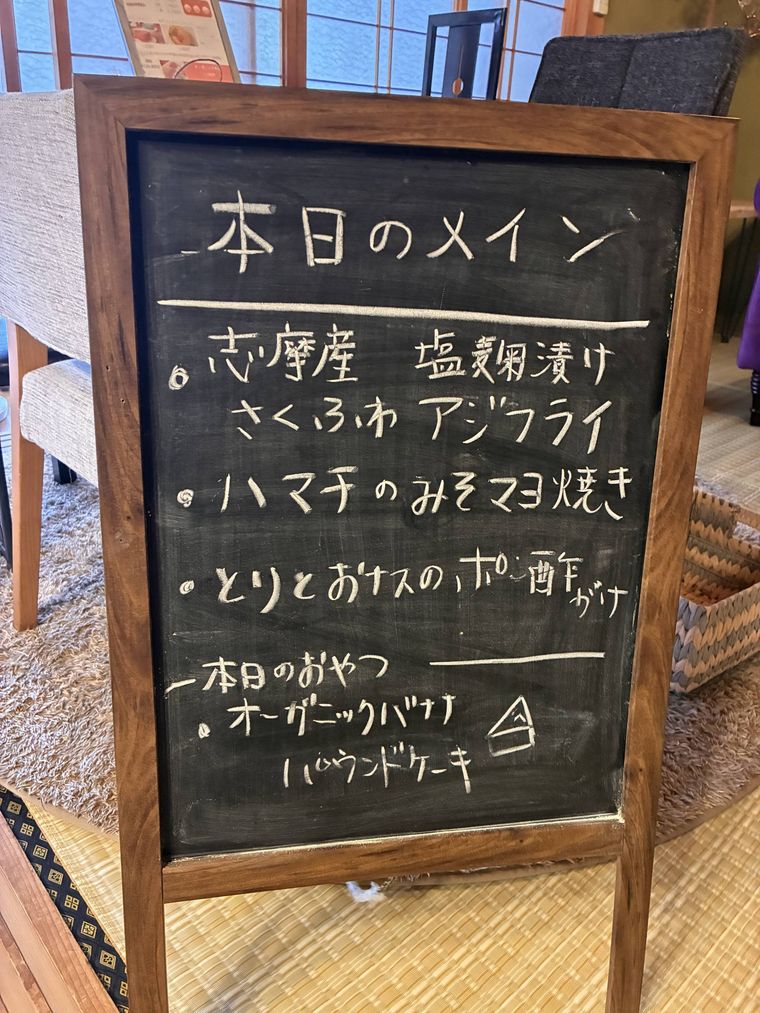 本日のメイン
志摩産 塩麹漬け
さくふわ アジフライ
ハマチのみそマヨ焼き
とりとおナスのポン酢がけ
本日のおやつ
オーガニックバナナ
パウンドケーキ